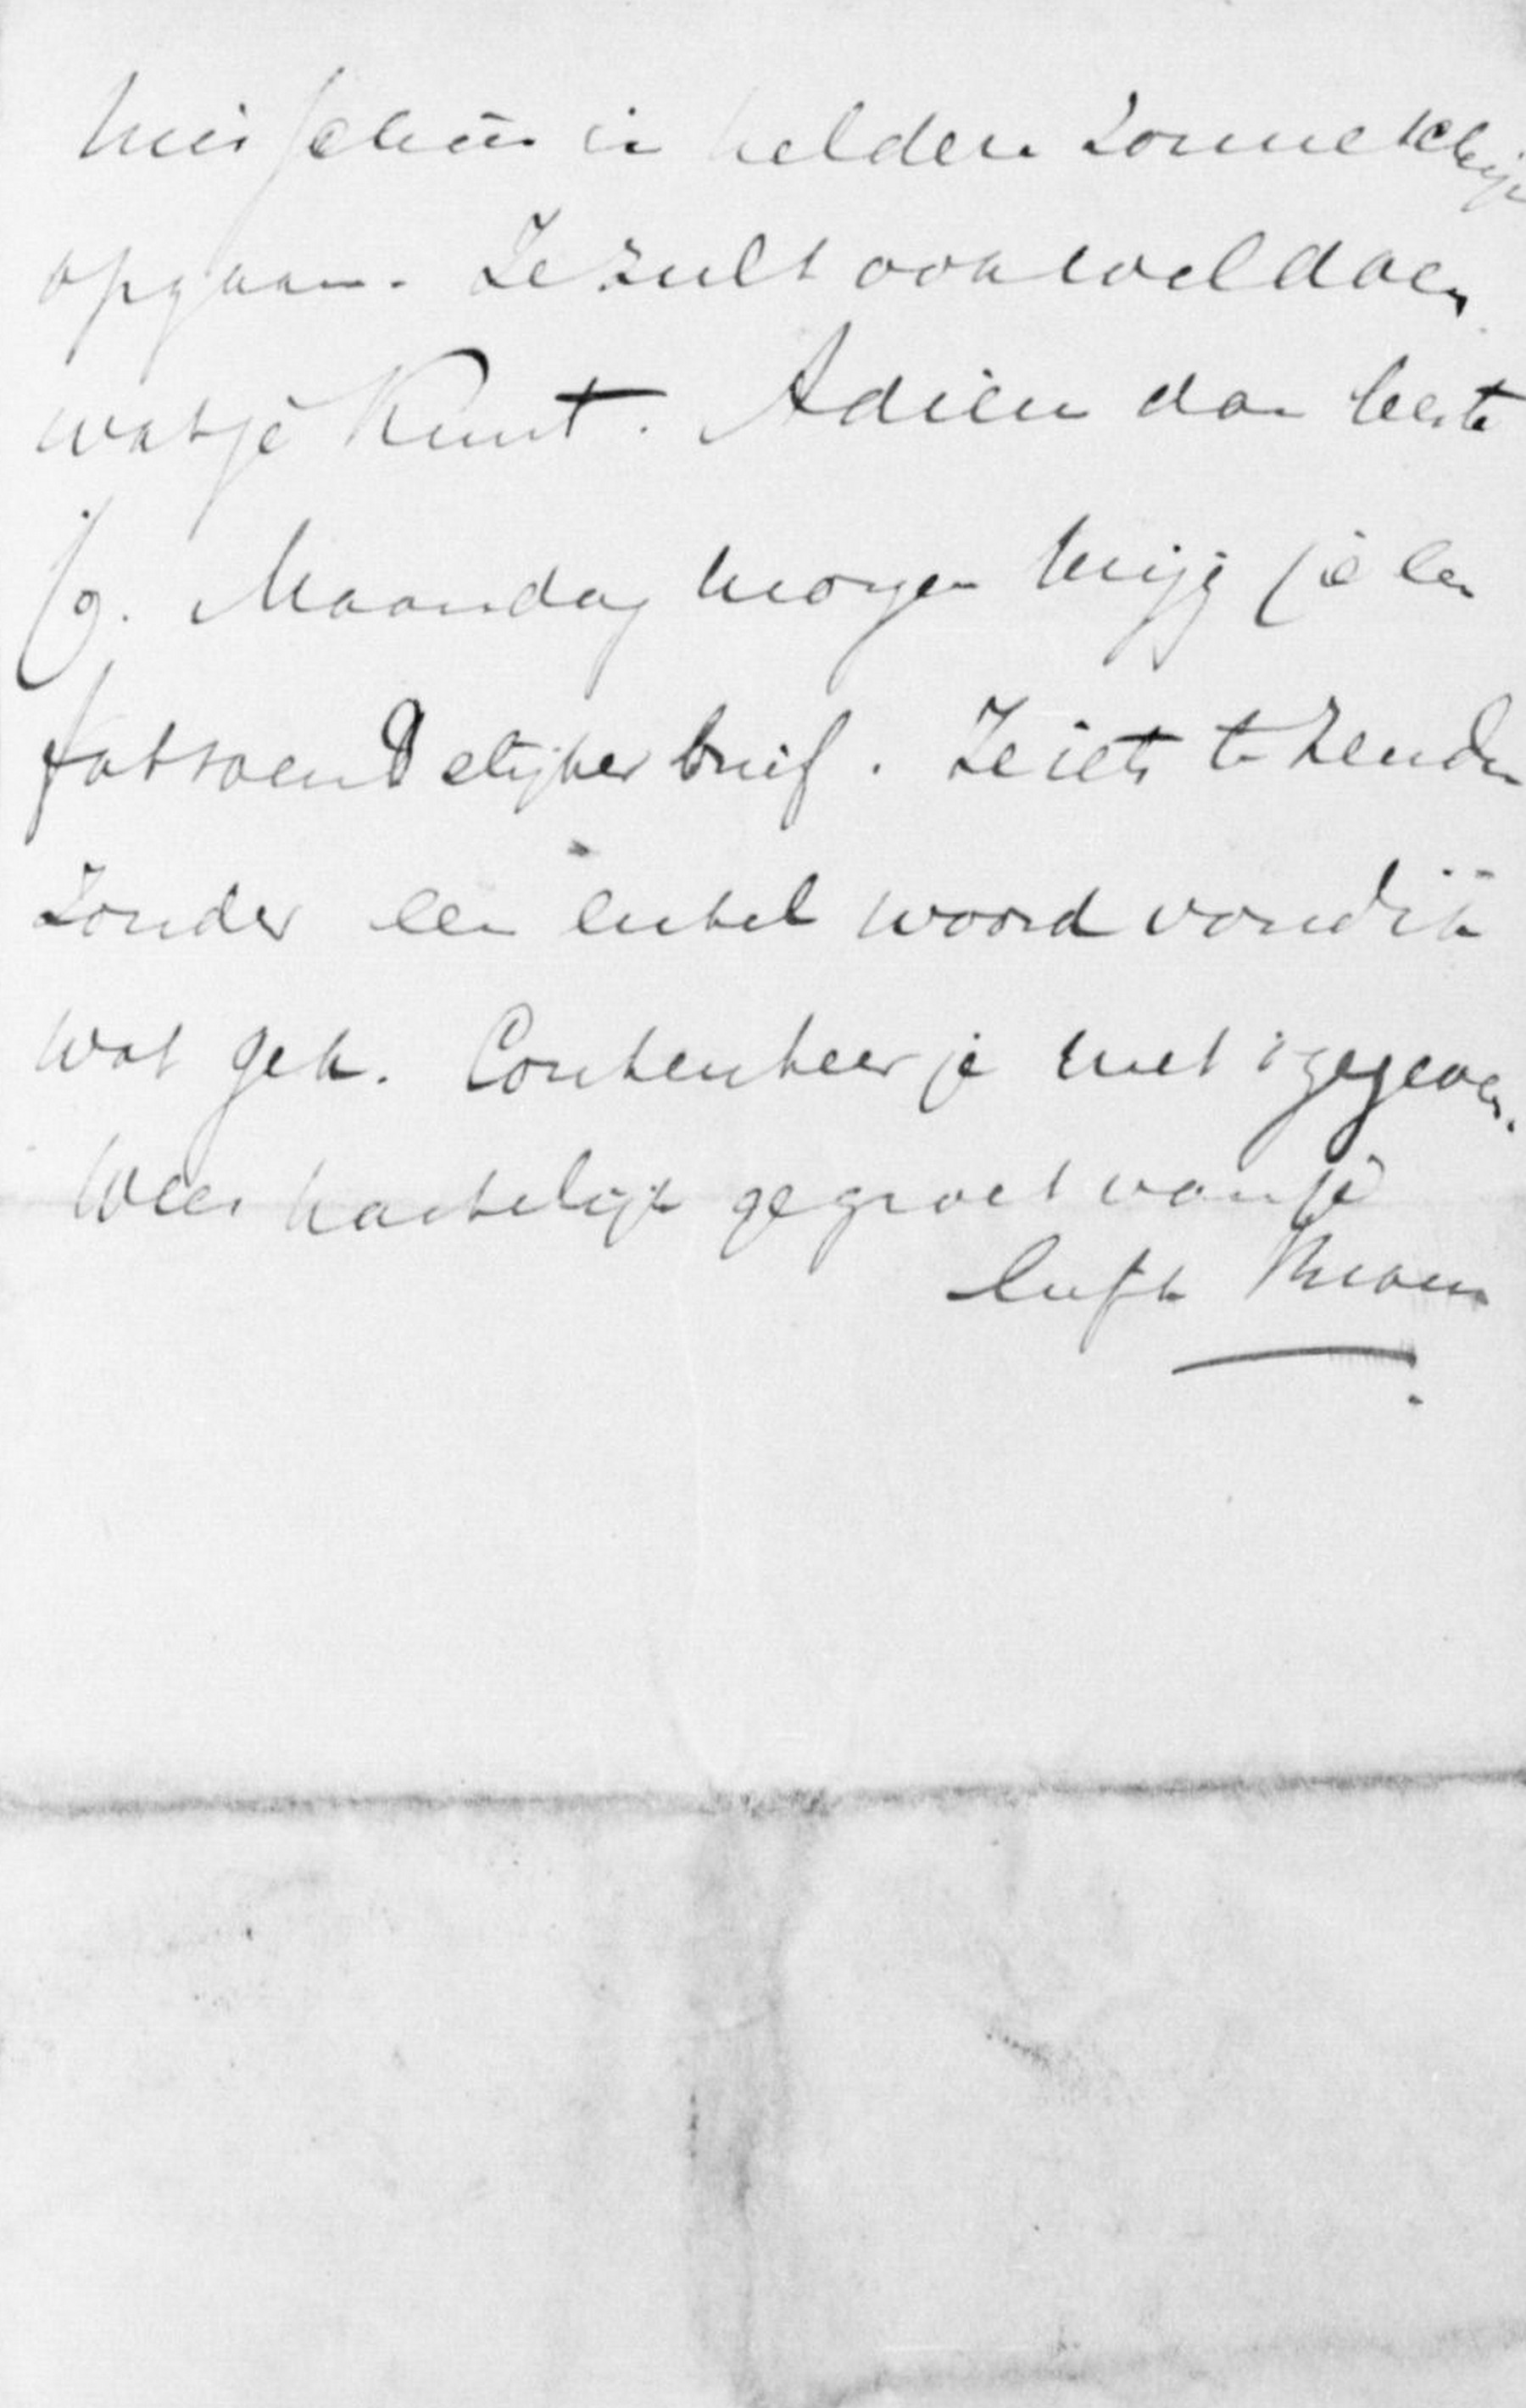 misschien in heldere zonneschijn
opgaan. Je zult ook wel doen
wat je kunt. Adieu dan beste
Jo. Maandag morgen krijg je een
fatsoendelijker brief. Je iets te zenden
zonder een enkel woord vond ik
wat gek. Contenteer je met 't gegeven.
Wees hartelijk gegroet van je
liefh. Moem